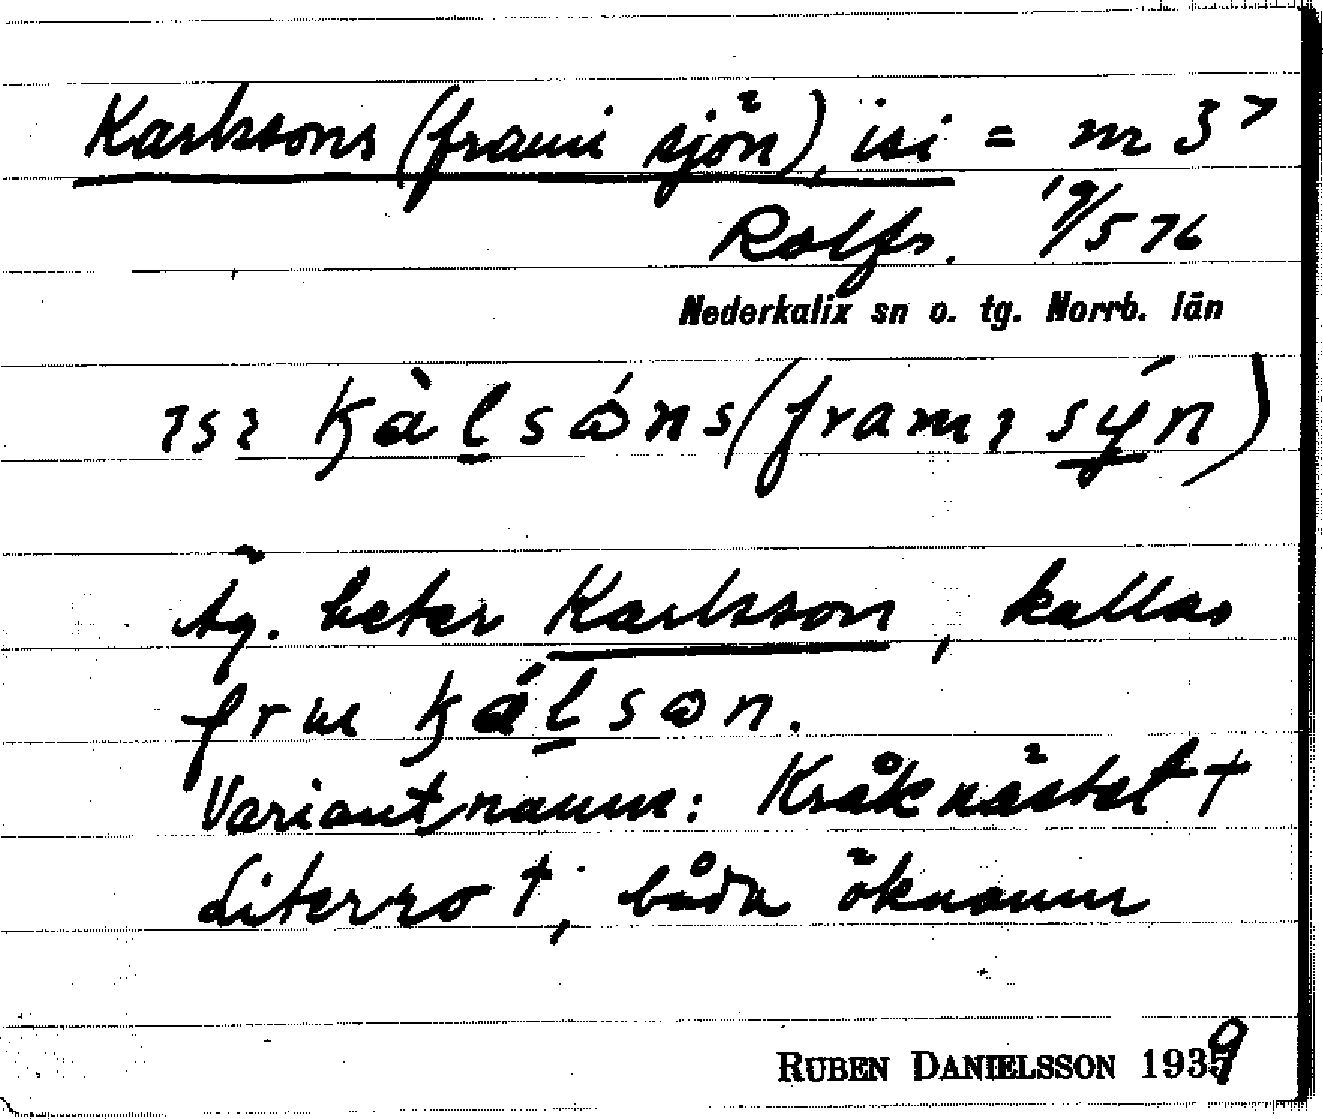 Karlssons (frami sjön), isi = nr 37
Rolfs. 19/5 76
Nederkalix sn o. tg. Norrb. län
ısı kàlsóns (framı sýn)
Äg. heter Karlsson, kallas
frm kálson.
Variantnamn: Kråknästet †
Literro †, båda öknamn
RUBEN DANIELSSON 1939